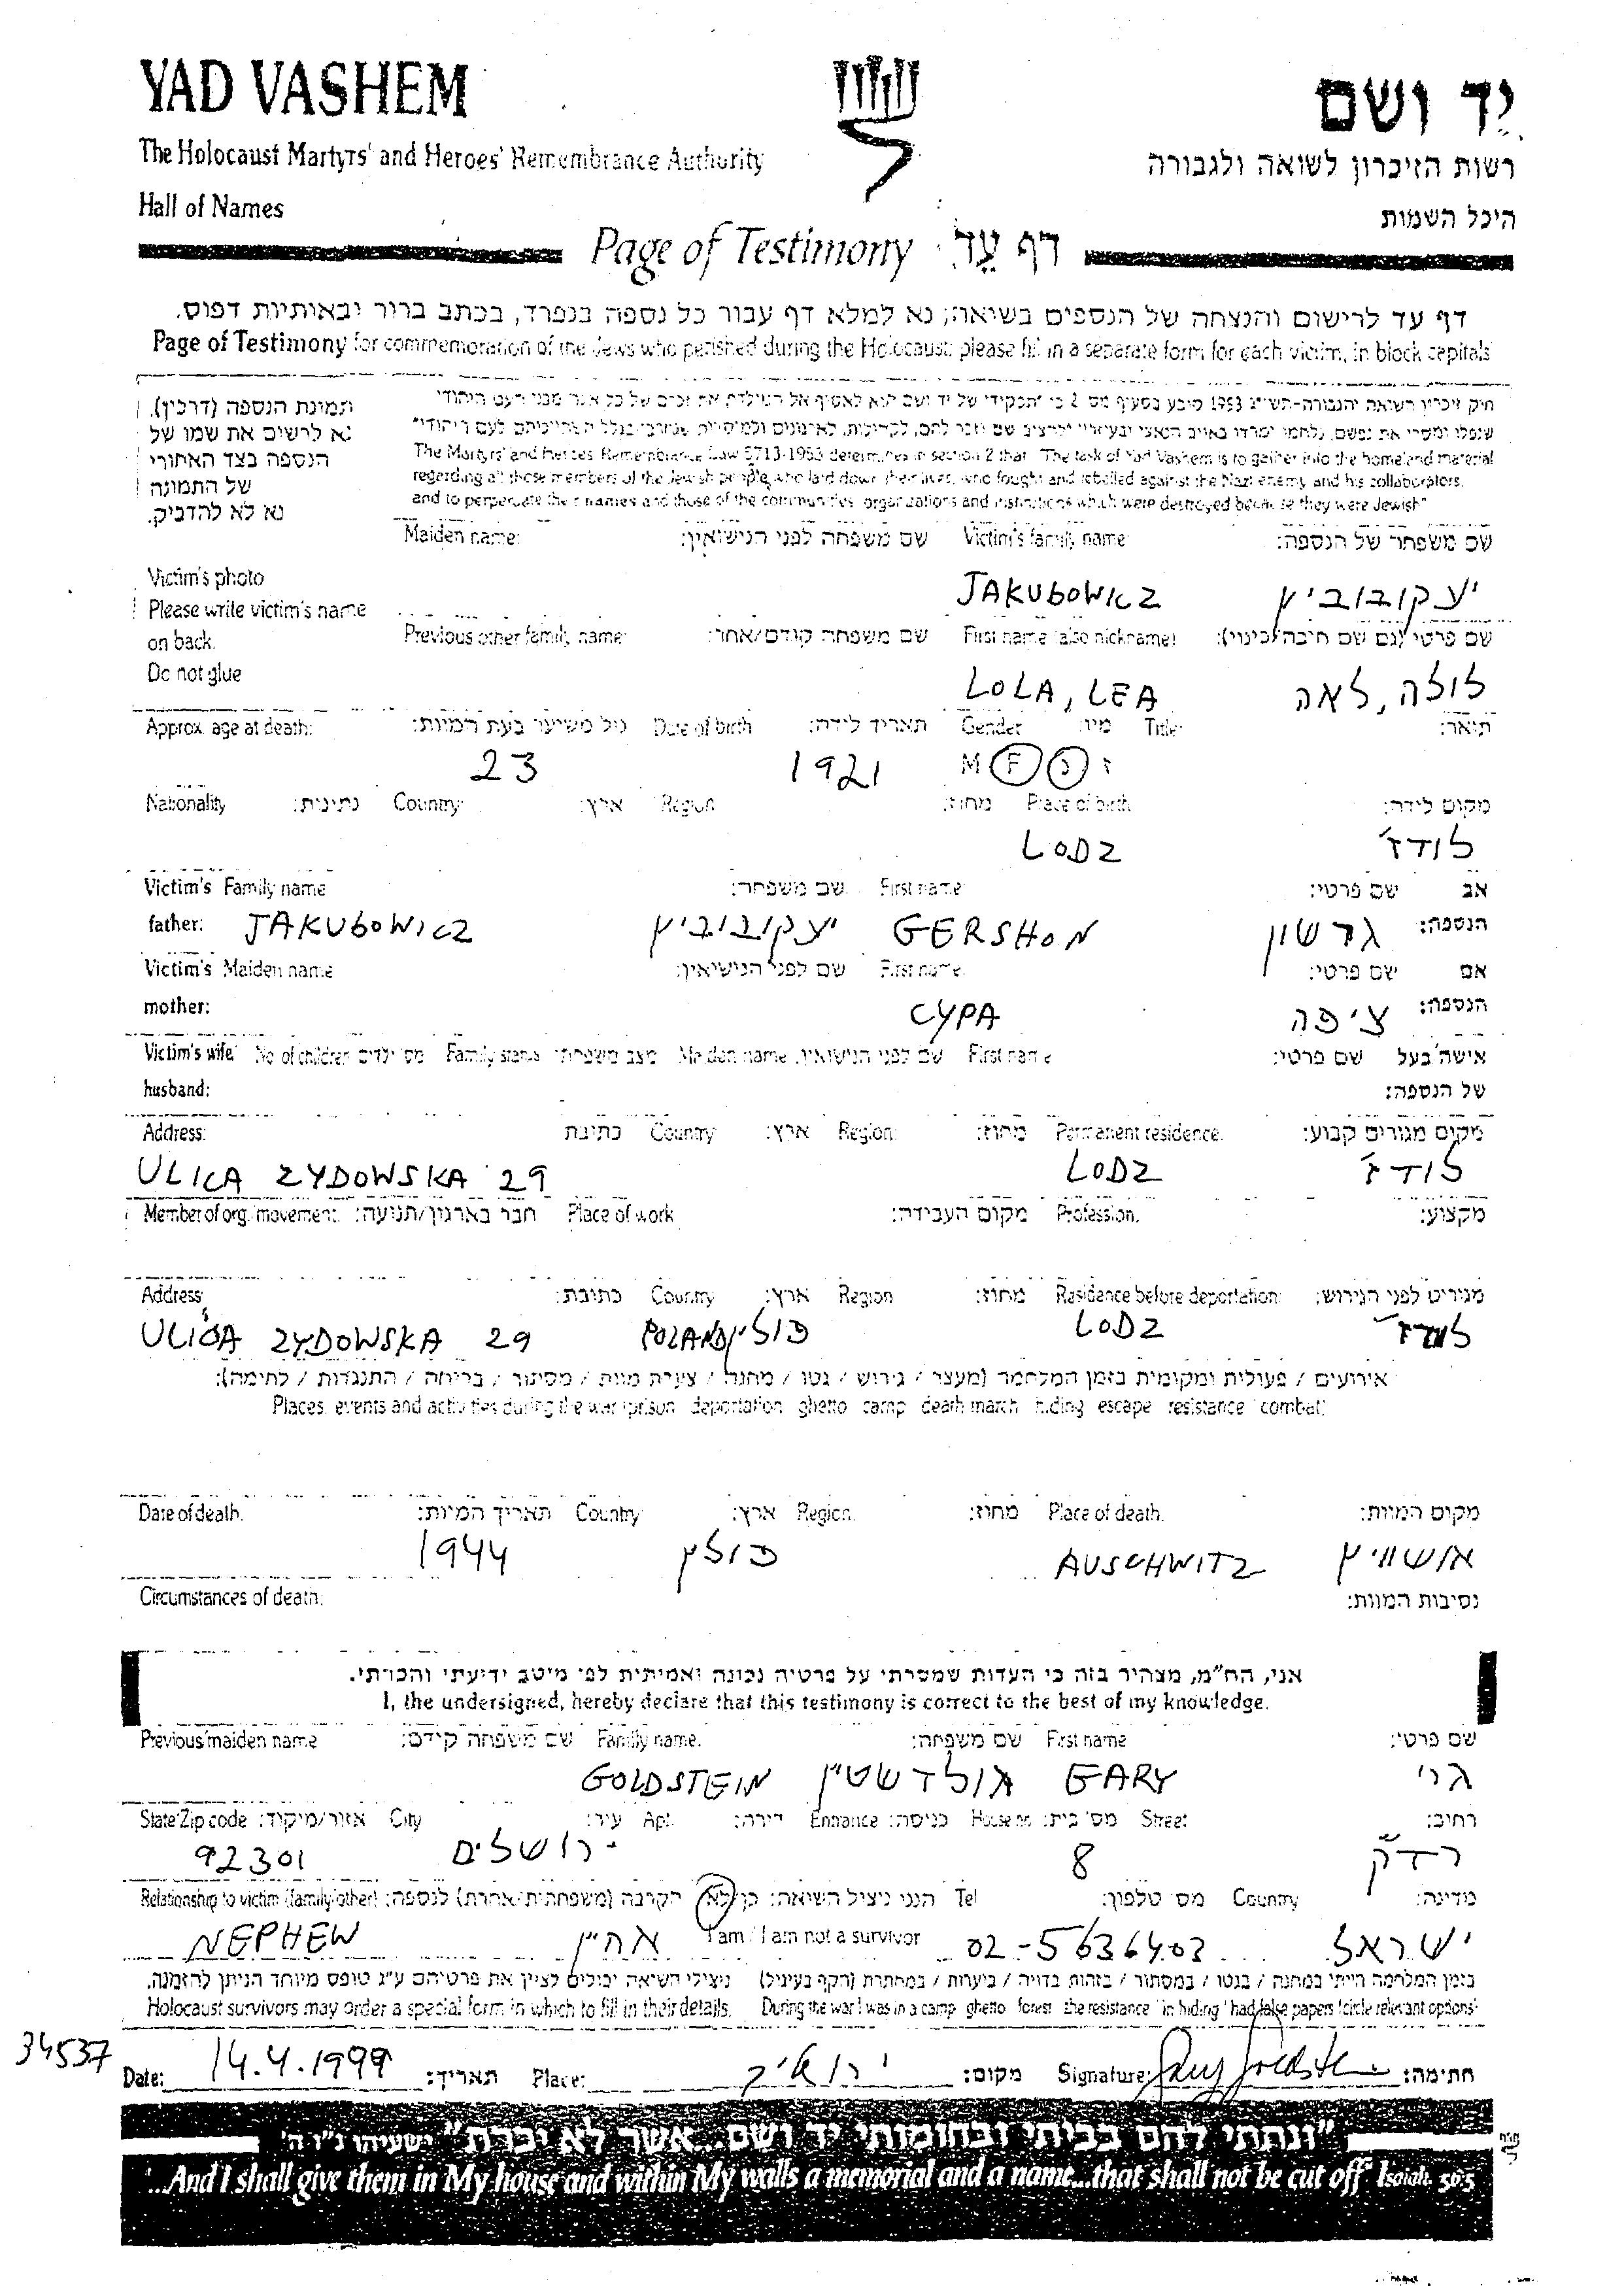 YAD VASHEM יָד ושם
The Holocaust Martyrs' and Heroes' Remembrance Authority רשות הזיכרון לשואה ולגבורה
Hall of Names היכל השמות
Page of Testimony דף עֵד
דף עד לרישום והנצחה של הנספים בשואה; נא למלא דף עבור כל נספה בנפרד, בכתב ברור ובאותיות דפוס.
Page of Testimony for commemoration of the Jews who perished during the Holocaust: please fill in a separate form for each victim, in block capitals
תמונת הנספה (דרכון).
נא לרשום את שמו של
הנספה בצד האחורי
של התמונה
נא לא להדביק.
Victim's photo
Please write victim's name
on back.
Do not glue
The Martyrs' and Heroes' Remembrance Law 5713-1953 determines in section 2 that "The task of Yad Vashem is to gather into the homeland material
regarding all those members of the Jewish people who laid down their lives, who fought and rebelled against the Nazi enemy and his collaborators,
and to perpetuate their names and those of the communities, organizations and institutions which were destroyed because they were Jewish"
Maiden name: שם משפחה לפני הנישואין: Victim's family name: שם משפחתו של הנספה:
JAKUBOWICZ יעקובוביץ
Previous/other family name: שם משפחה קודם/אחר: First name (also nickname) שם פרטי (גם שם חיבה/כינוי):
LOLA, LEA לולה, לאה
Approx. age at death: גיל משוער בעת המוות: Date of birth תאריך לידה: Gender מין: Title: תואר:
23 1921 M F נ ז
Nationality נתינות: Country: ארץ: Region מחוז: Place of birth מקום לידה:
LODZ לודז'
Victim's Family name שם משפחה: First name: שם פרטי: אב
father: JAKUBOWICZ יעקובוביץ GERSHON גרשון הנספה:
Victim's Maiden name שם לפני הנישואין: First name: שם פרטי: אם
mother: CYPA ציפה הנספה:
Victim's wife/ No of children מס' ילדים Family status מצב משפחתי: Maiden name שם לפני הנישואין: First name שם פרטי: אישה/בעל
husband: של הנספה:
Address: כתובת Country ארץ: Region: מחוז: Permanent residence: מקום מגורים קבוע:
ULICA ZYDOWSKA 29 LODZ לודז'
Member of org./movement: חבר בארגון/תנועה: Place of work מקום העבודה: Profession: מקצוע:
Address כתובת: Country ארץ: Region מחוז: Residence before deportation: מגורים לפני הגירוש:
ULICA ZYDOWSKA 29 POLAND פולין LODZ לודז'
אירועים / פעולות ומקומות בזמן המלחמה (מעצר / גירוש / גטו / מחנה / צעדת מוות / מסתור / בריחה / התנגדות / לחימה):
Places, events and activities during the war (prison deportation ghetto camp death march hiding escape resistance combat)
Date of death: תאריך המוות: Country ארץ: Region: מחוז: Place of death: מקום המוות:
1944 פולין AUSCHWITZ אושוויץ
Circumstances of death: נסיבות המוות:
אני, הח"מ, מצהיר בזה כי העדות שמסרתי על פרטיה נכונה ואמיתית לפי מיטב ידיעתי והכרתי.
I, the undersigned, hereby declare that this testimony is correct to the best of my knowledge.
Previous/maiden name שם משפחה קודם: Family name: שם משפחה: First name שם פרטי:
GOLDSTEIN גולדשטיין GARY גרי
State/Zip code אזור/מיקוד: City עיר: Apt. דירה: Entrance כניסה: House no מס' בית: Street רחוב:
92301 ירושלים 8 רד"ק
Relationship to victim (family/other) הקרבה (משפחתית/אחרת) לנספה: הנני ניצול השואה: כן/לא Tel מס' טלפון: Country מדינה:
NEPHEW אחיין I am / I am not a survivor 02-5636403 ישראל
ניצולי השואה יכולים לציין את פרטיהם ע"ג טופס מיוחד הניתן להזמנה. בזמן המלחמה הייתי במחנה / בגטו / במסתור / בזהות בדויה / ביערות / במחתרת (הקף בעיגול)
Holocaust survivors may order a special form in which to fill in their details. During the war I was in a camp ghetto forest the resistance in hiding had false papers (circle relevant options)
34537
Date: 14.4.1999 תאריך: Place: מקום: Signature: חתימה:
"ונתתי להם בביתי ובחומותי יד ושם...אשר לא יכרת" ישעיהו נ"ו ה'
"...And I shall give them in My house and within My walls a memorial and a name...that shall not be cut off" Isaiah 56:5